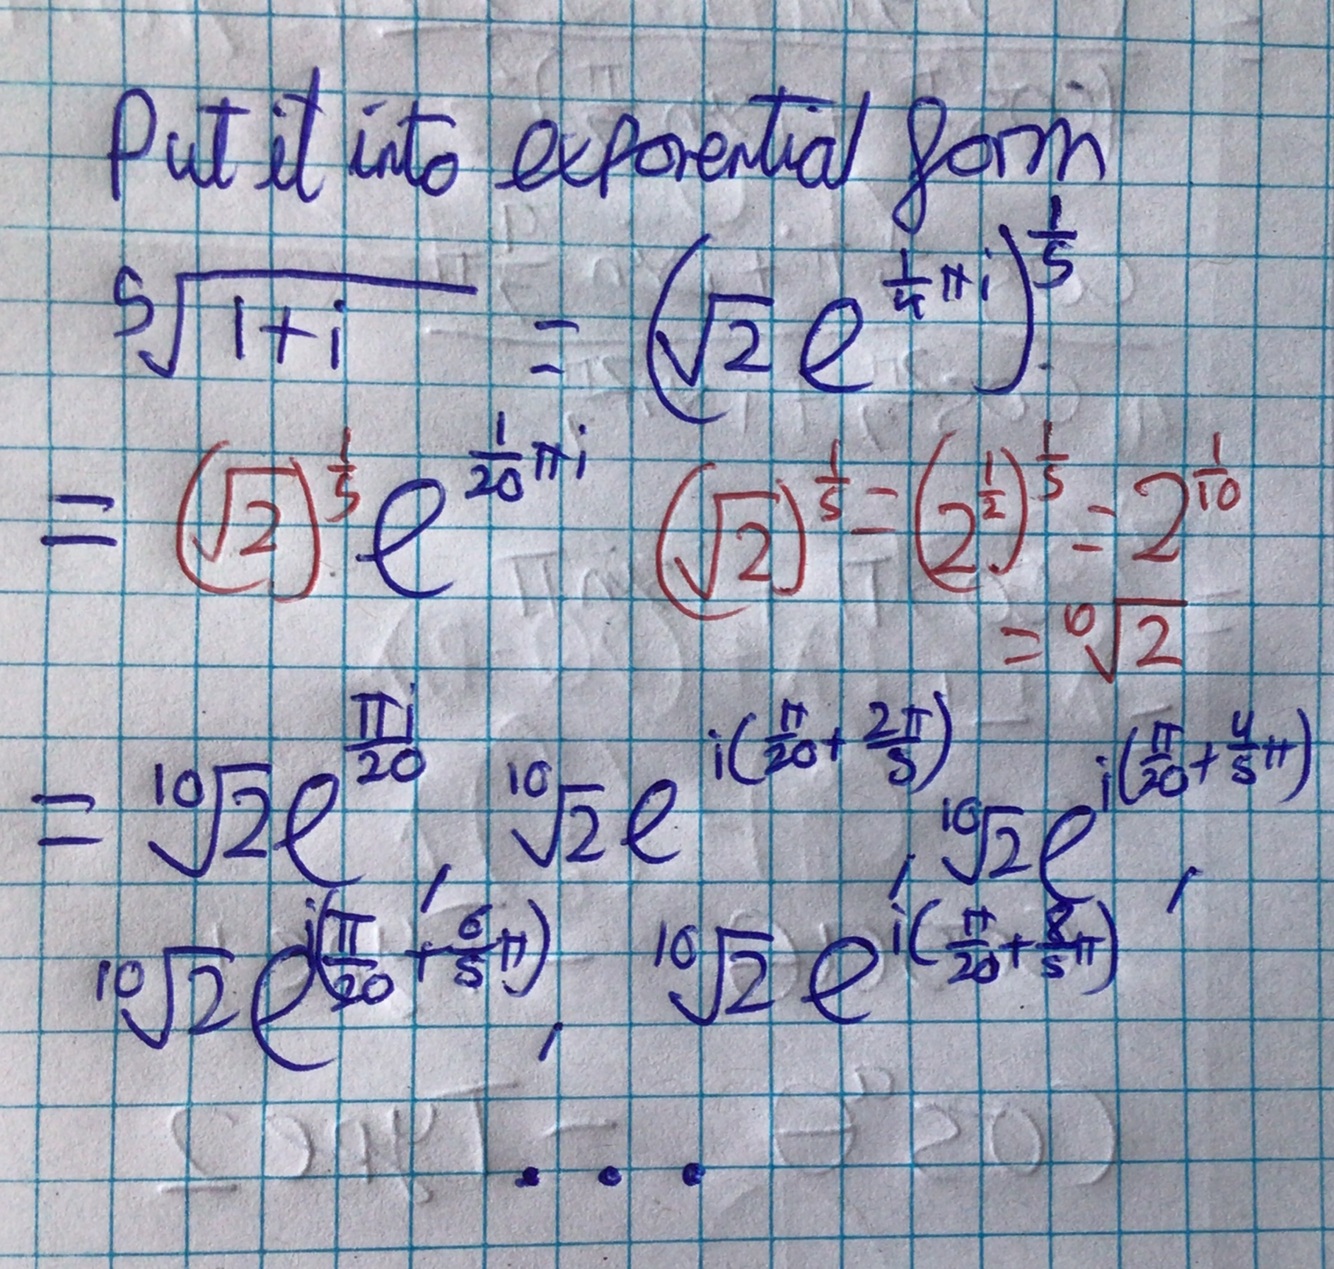 Put it into exponential form
⁵√(1+i) = (√2 e^(1/4 πi))^(1/5).
= (√2)^(1/5) e^(1/20 πi) (√2)^(1/5) = (2^(1/2))^(1/5) = 2^(1/10)
= ¹⁰√2
= ¹⁰√2 e^(πi/20), ¹⁰√2 e^(i(π/20 + 2π/5)), ¹⁰√2 e^(i(π/20 + 4/5 π)),
¹⁰√2 e^(i(π/20 + 6/5 π)), ¹⁰√2 e^(i(π/20 + 8/5 π))
...